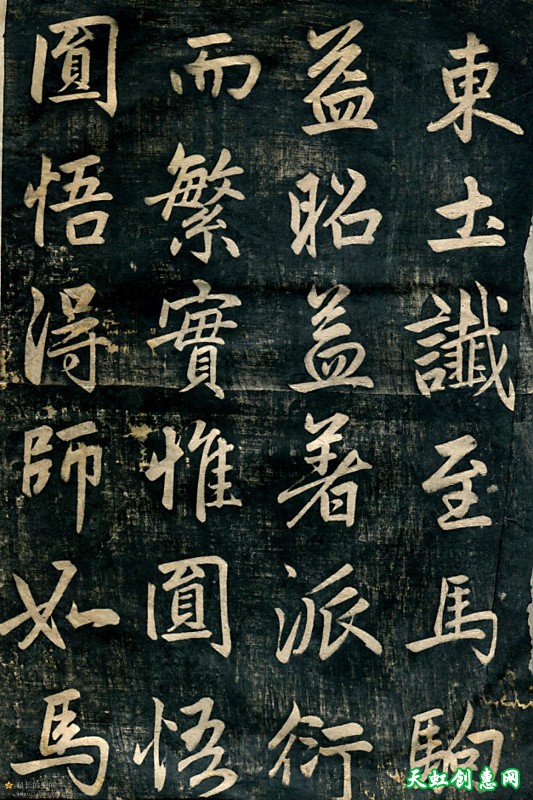 東土讖至馬駒
益昭益著派衍
而繁實惟圓悟
圓悟得師如馬
天虹创惠网